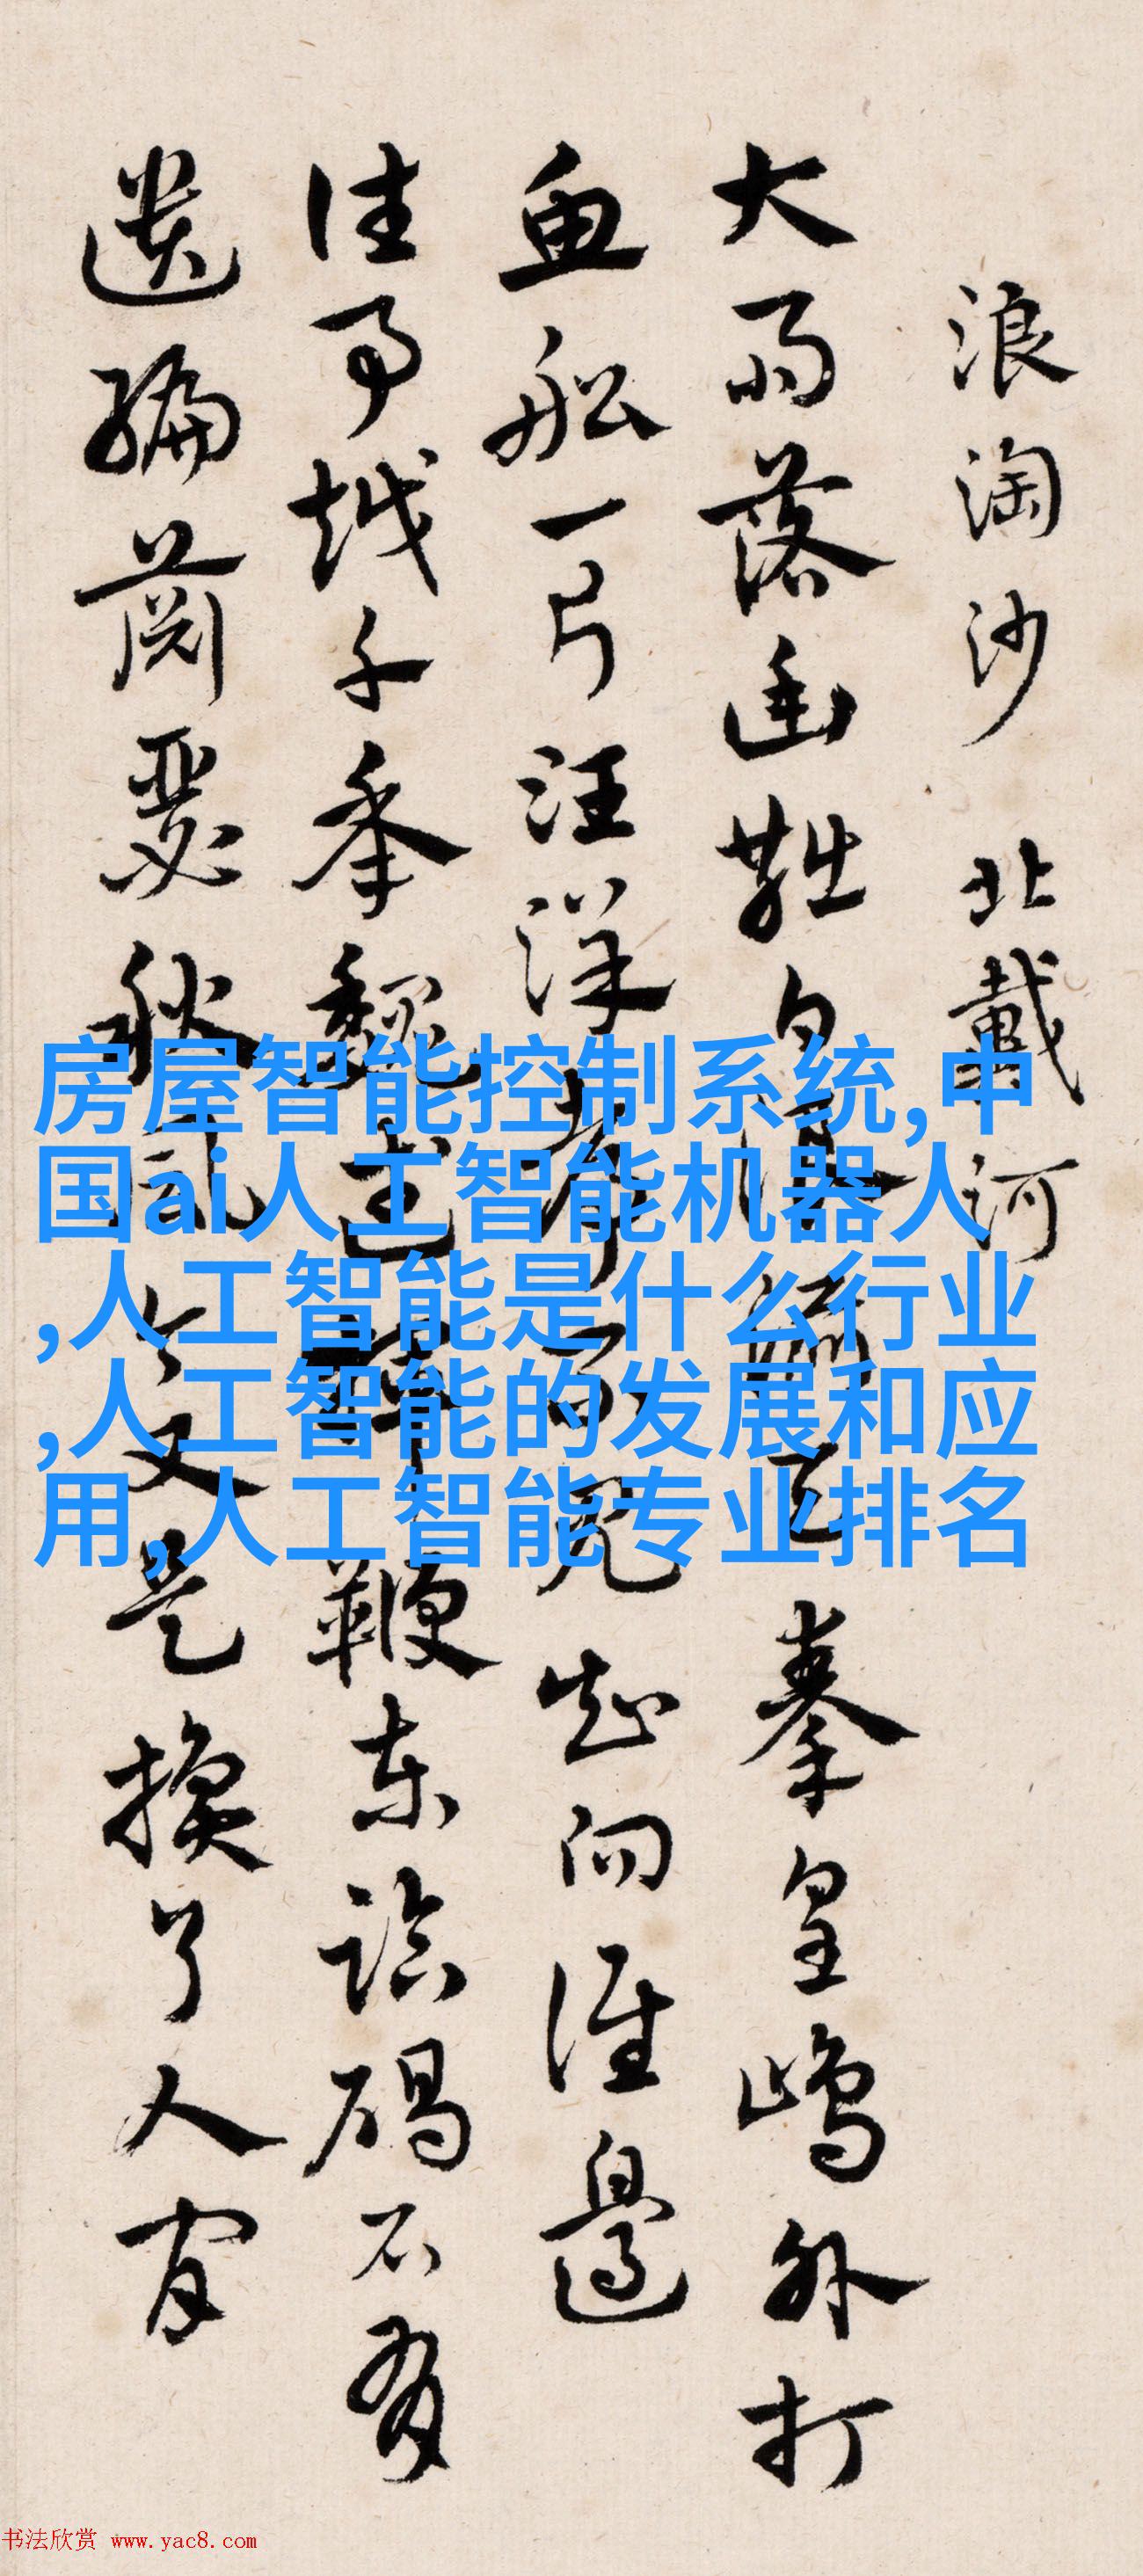 浪淘沙 北戴河
大雨落幽燕白浪滔天 秦皇島外打
鱼船一片汪洋都不見知向誰邊
往事越千年魏武揮鞭东临碣石有
遗编萧瑟秋风今又是换了人间
房屋智能控制系统,中
国ai人工智能机器人
,人工智能是什么行业
,人工智能的发展和应
用,人工智能专业排名
书法欣赏 www.yac8.com